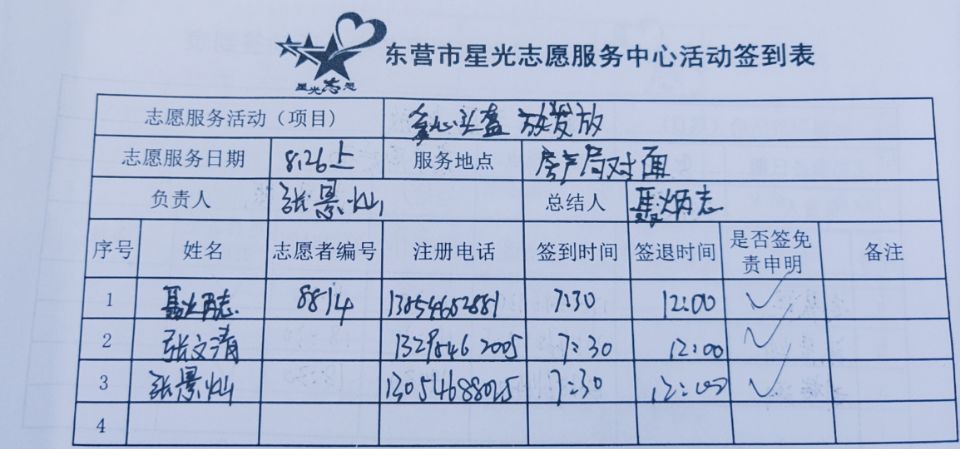 星光志愿
东营市星光志愿服务中心活动签到表
志愿服务活动（项目） 爱心 发放
志愿服务日期 8.26上 服务地点 房产局对面
负责人 张景灿 总结人 聂炳志
序号 姓名 志愿者编号 注册电话 签到时间 签退时间 是否签免责申明 备注
1 聂炳志 8814 13054602881 7:30 12:00 ✓
2 张文清 2005 7:30 12:00 ✓
3 张景灿 7:30 12:00 ✓
4